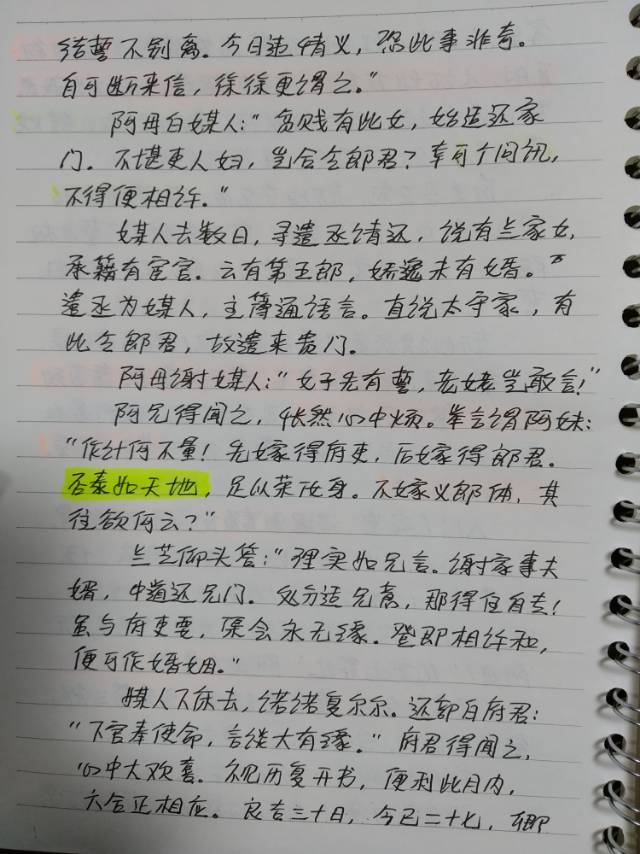 结誓不别离。今日违情义，恐此事非奇。
自可断来信，徐徐更谓之。”
阿母白媒人：“贫贱有此女，始适还家
门。不堪吏人妇，岂合令郎君？幸可个问讯，
不得便相许。”
媒人去数日，寻遣丞请还，说有兰家女，
承籍有宦官。云有第五郎，娇逸未有婚。
遣丞为媒人，主簿通语言。直说太守家，有
此令郎君，故遣来贵门。
阿母谢媒人：“女子先有誓，老姥岂敢言！”
阿兄得闻之，怅然心中烦。举言谓阿妹：
“作计何不量！先嫁得府吏，后嫁得郎君。
否泰如天地，足以荣汝身。不嫁义郎体，其
往欲何云？”
兰芝仰头答：“理实如兄言。谢家事夫
婿，中道还兄门。处分适兄意，那得任自专！
虽与府吏要，渠会永无缘。登即相许和，
便可作婚姻。”
媒人下床去，诺诺复尔尔。还部白府君：
“下官奉使命，言谈大有缘。”府君得闻之，
心中大欢喜。视历复开书，便利此月内，
六合正相应。良吉三十日，今已二十七，卿